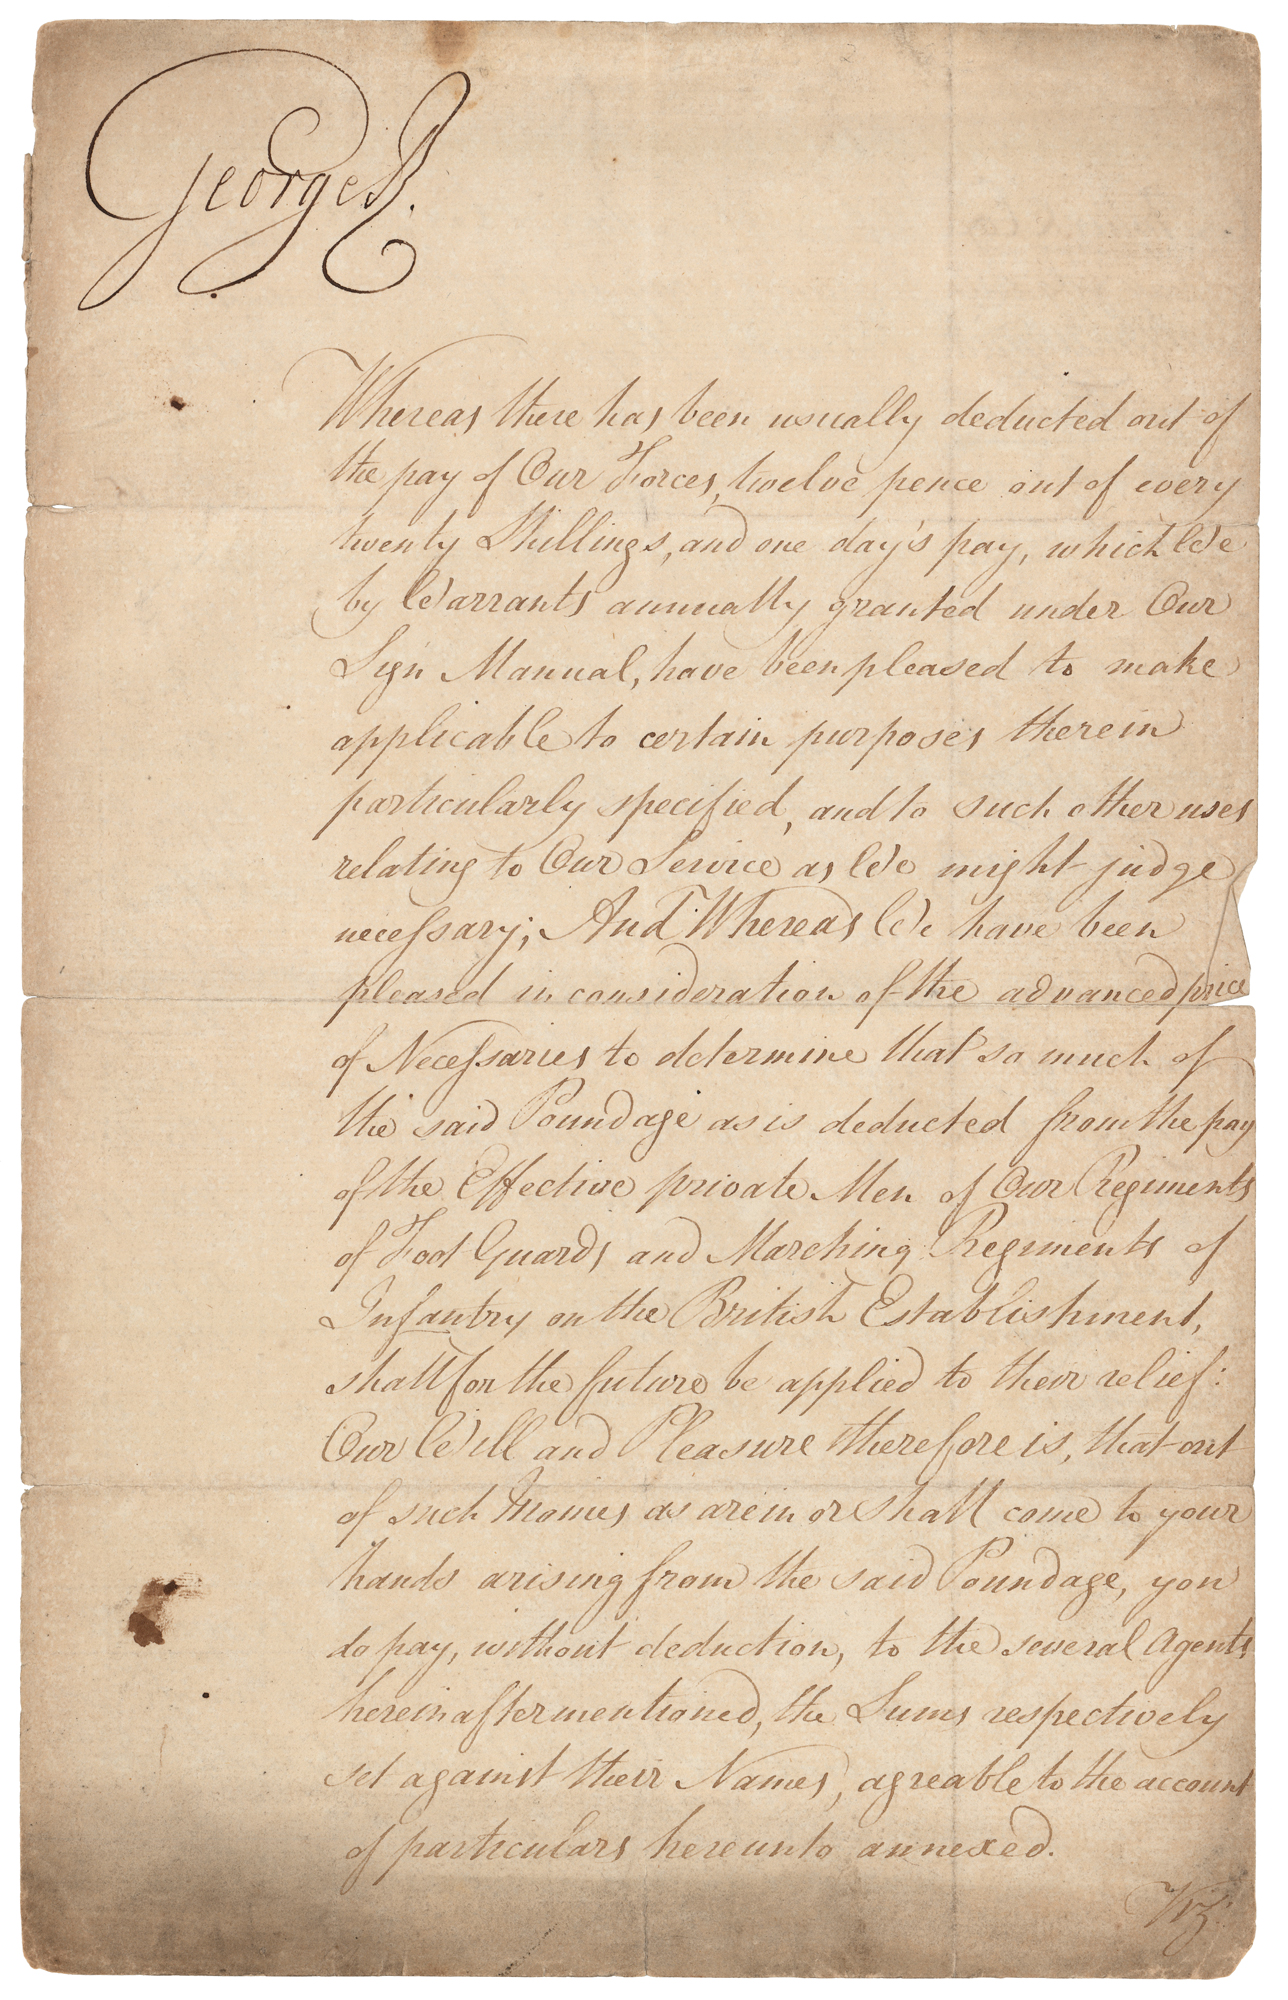 George R.
Whereas there has been usually deducted out of
the pay of Our Forces, twelve pence out of every
twenty Shillings, and one day's pay, which We
by Warrants annually granted under Our
Sign Manual, have been pleased to make
applicable to certain purposes therein
particularly specified, and to such other uses
relating to Our Service as We might judge
necessary; And Whereas We have been
pleased in consideration of the advanced price
of Necessaries to determine that so much of
the said Poundage as is deducted from the pay
of the Effective private Men of Our Regiments
of Foot Guards and Marching Regiments of
Infantry on the British Establishment,
shall for the future be applied to their relief:
Our Will and Pleasure therefore is, that out
of such Monies as are in or shall come to your
hands arising from the said Poundage, you
do pay, without deduction, to the several Agents
herein after mentioned, the Sums respectively
set against their Names, agreable to the account
of particulars hereunto annexed.
Viz.